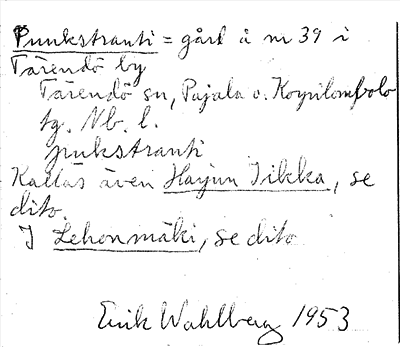 Punkstranti = gård å nr 39 i
Tärendö by
Tärendö sn, Pajala o. Korpilombolo
tg. Nb. l.
punkstranti
Kallas även Harjun Iikka, se
dito.
I Lehonmäki, se dito
Erik Wahlberg 1953